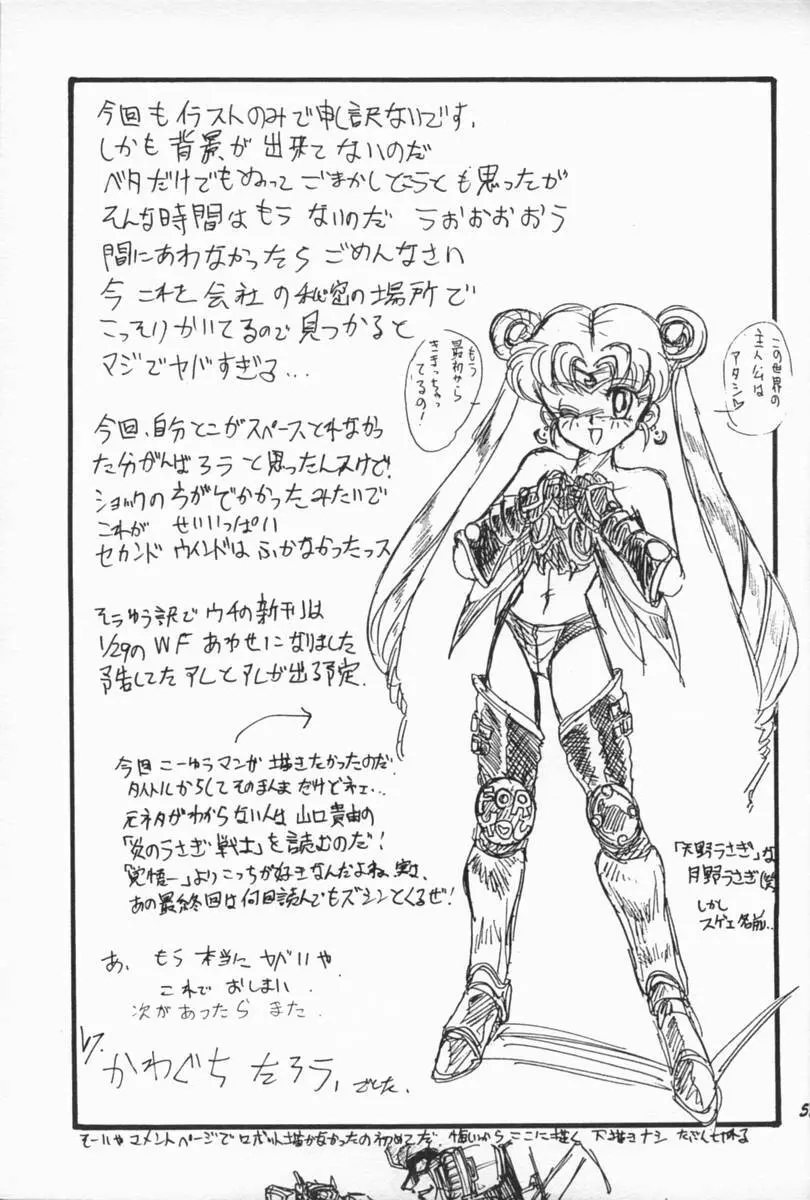 今回もイラストのみで申し訳ないです.
しかも背景が出来てないのだ
ベタだけでもぬってごまかしとこうとも思ったが
そんな時間はもうないのだ うおおおおう
間にあわなかったら ごめんなさい
今これを会社の秘密の場所で
こっそりかいてるので見つかると
マジでヤバすぎる...
今回、自分とこがスペースとれなかっ
た分がんばろうと思ったんスけど!
ショックの方がでかかったみたいで
これが せいいっぱい
セカンド ウインドは ふかなかったっス
そうゆう訳でウチの新刊は
1/29のWFあわせになりました
予告してたアレとアレが出る予定.
今回こーゆうマンガ描きたかったのだ!
タイトルからしてそのまんまだけどネェ...
元ネタがわからない人は山口貴由の
「炎のうさぎ戦士」を読むのだ!
「覚悟ー」よりこっちが好きなんだよね、実は、
あの最終回は何回読んでもズシンとくるぜ!
あ、もう本当にヤバいや.
これで おしまい.
次があったら また
かわぐち たろう、でした.
もう
最初から
きまっちゃっ
てるの!
この世界の
主人公は
アタシ♡
「天野うさぎ」な
月野うさぎ(笑)
しかし
スゲェ名前...
コメントページでロボット描かなかったの初めてだ. 悔しいからここに描く 下描きナシ